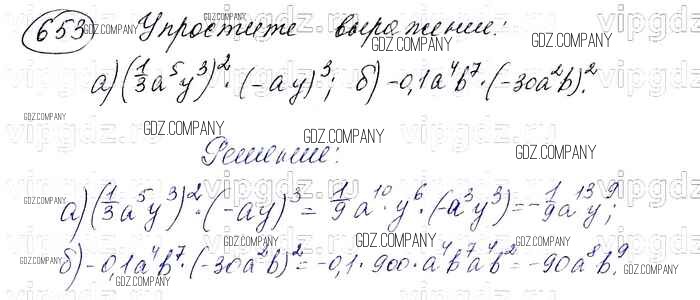 653 Упростите выражение:
а) (1/3 a⁵y³)² · (-ay)³; б) -0,1a⁴b⁷ · (-30a²b)².
Решение:
а) (1/3 a⁵y³)² · (-ay)³ = 1/9 a¹⁰ · y⁶ · (-a³y³) = -1/9 a¹³y⁹;
б) -0,1a⁴b⁷ · (-30a²b)² = -0,1 · 900 · a⁴b⁷a⁴b² = -90a⁸b⁹.